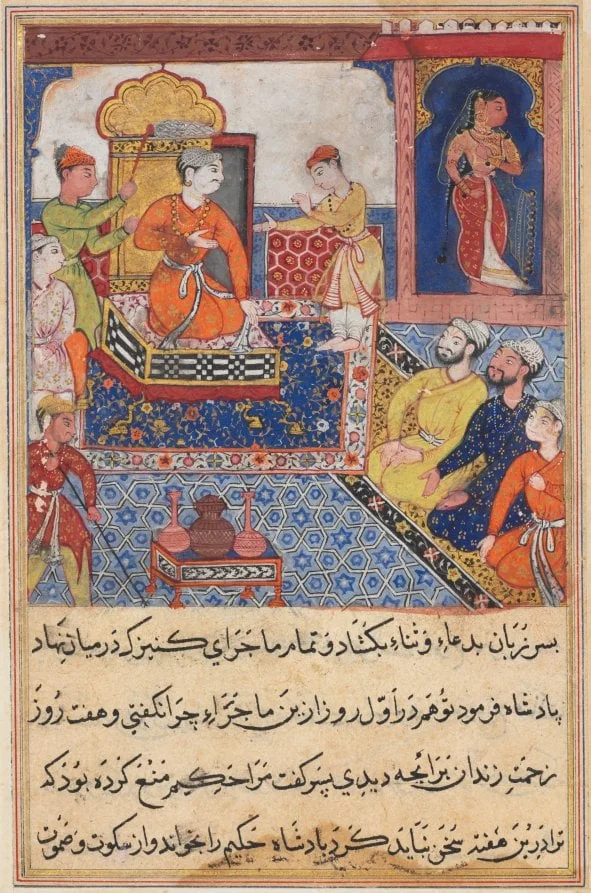 پسر زبان بدعاء و ثناء بکشاد و تمام ماجرای کنیزک در میان نهاد
پادشاه فرمود تو هم در اول روز ازین ماجراء چرا نکفتی و هفت روز
زحمت زندان برائجه دیدی پسر کفت مرا حکیم منع کرده بود که
ترا درین هفته سخن نباید کرد پادشاه حکیم را بخواند و از سکوت و صموت